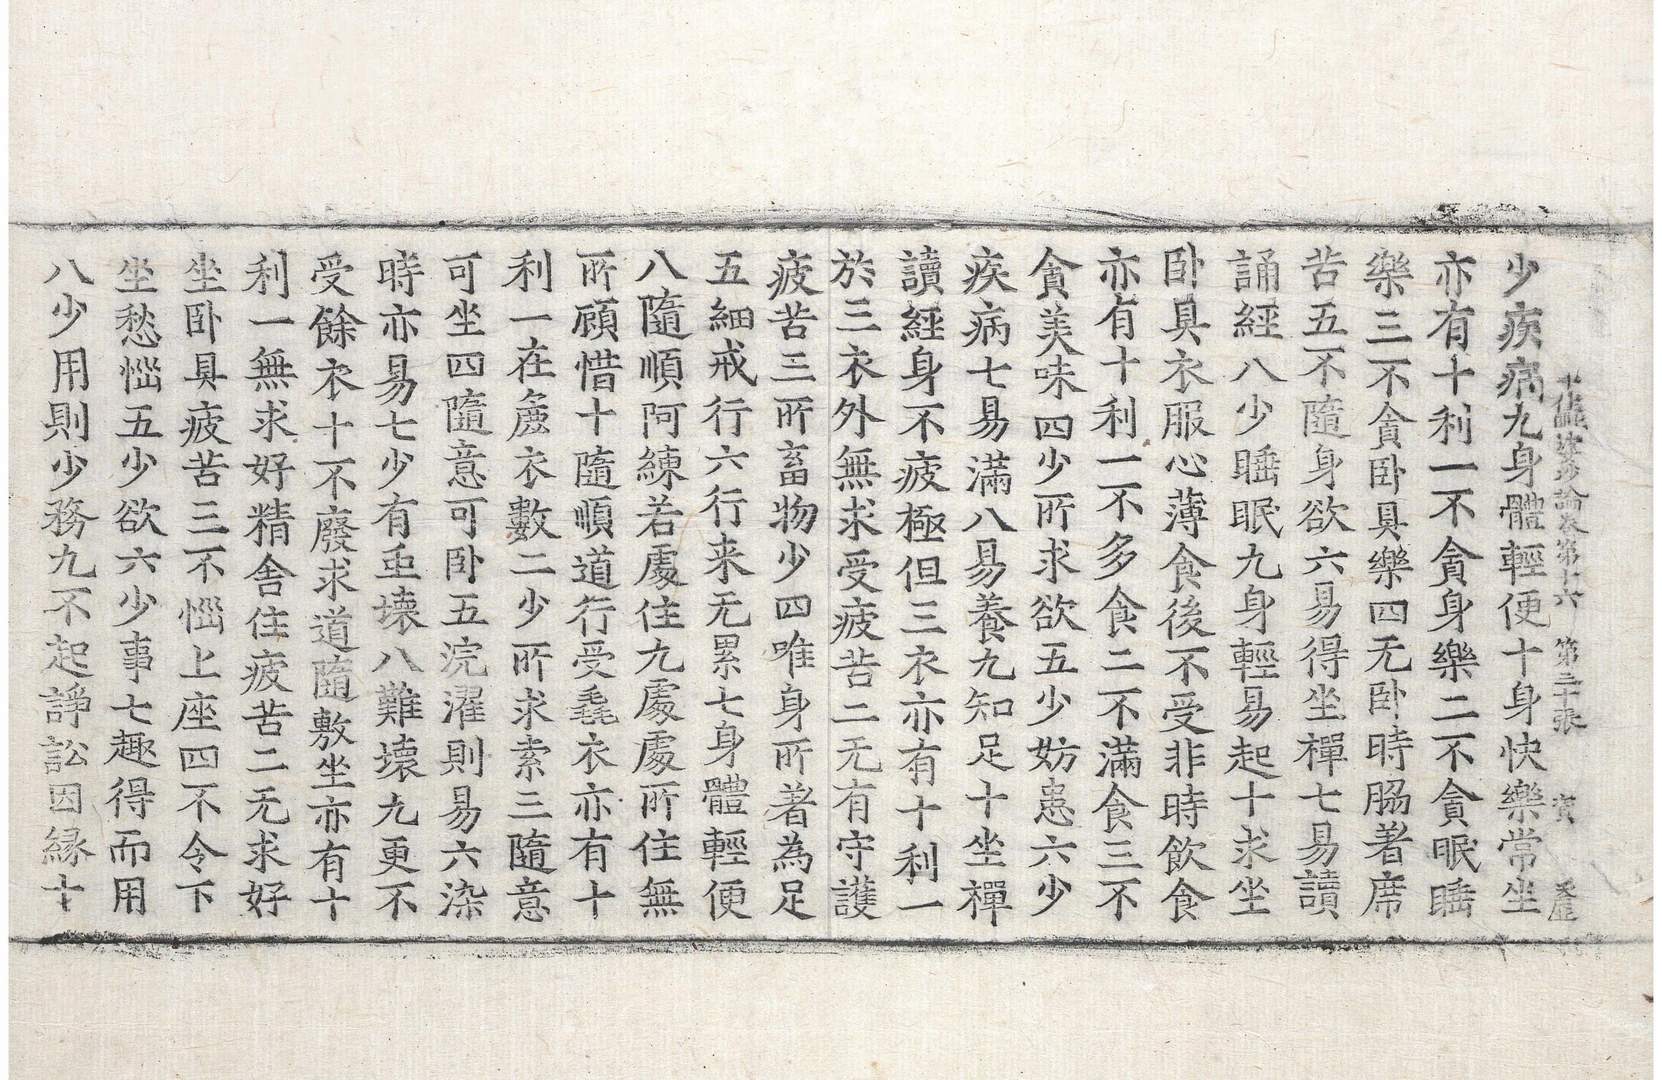 十住毗婆沙論卷第十六　第三十張　賓
少疾病九身體輕便十身快樂常坐
亦有十利一不貪身樂二不貪眠睡
樂三不貪卧具樂四无卧時脇著席
苦五不隨身欲六易得坐禪七易讀
誦經八少睡眠九身輕易起十求坐
卧具衣服心薄食後不受非時飲食
亦有十利一不多食二不滿食三不
貪美味四少所求欲五少妨患六少
疾病七易滿八易養九知足十坐禪
讀經身不疲極但三衣亦有十利一
於三衣外無求受疲苦二无有守護
疲苦三所畜物少四唯身所著為足
五細戒行六行来无累七身體輕便
八隨順阿練若處住九處處所住無
所顧惜十隨順道行受毳衣亦有十
利一在麁衣數二少所求索三隨意
可坐四隨意可卧五浣濯則易六染
時亦易七少有虫壞八難壞九更不
受餘衣十不廢求道隨敷坐亦有十
利一無求好精舍住疲苦二无求好
坐卧具疲苦三不惱上座四不令下
坐愁惱五少欲六少事七趣得而用
八少用則少務九不起諍訟因緣十